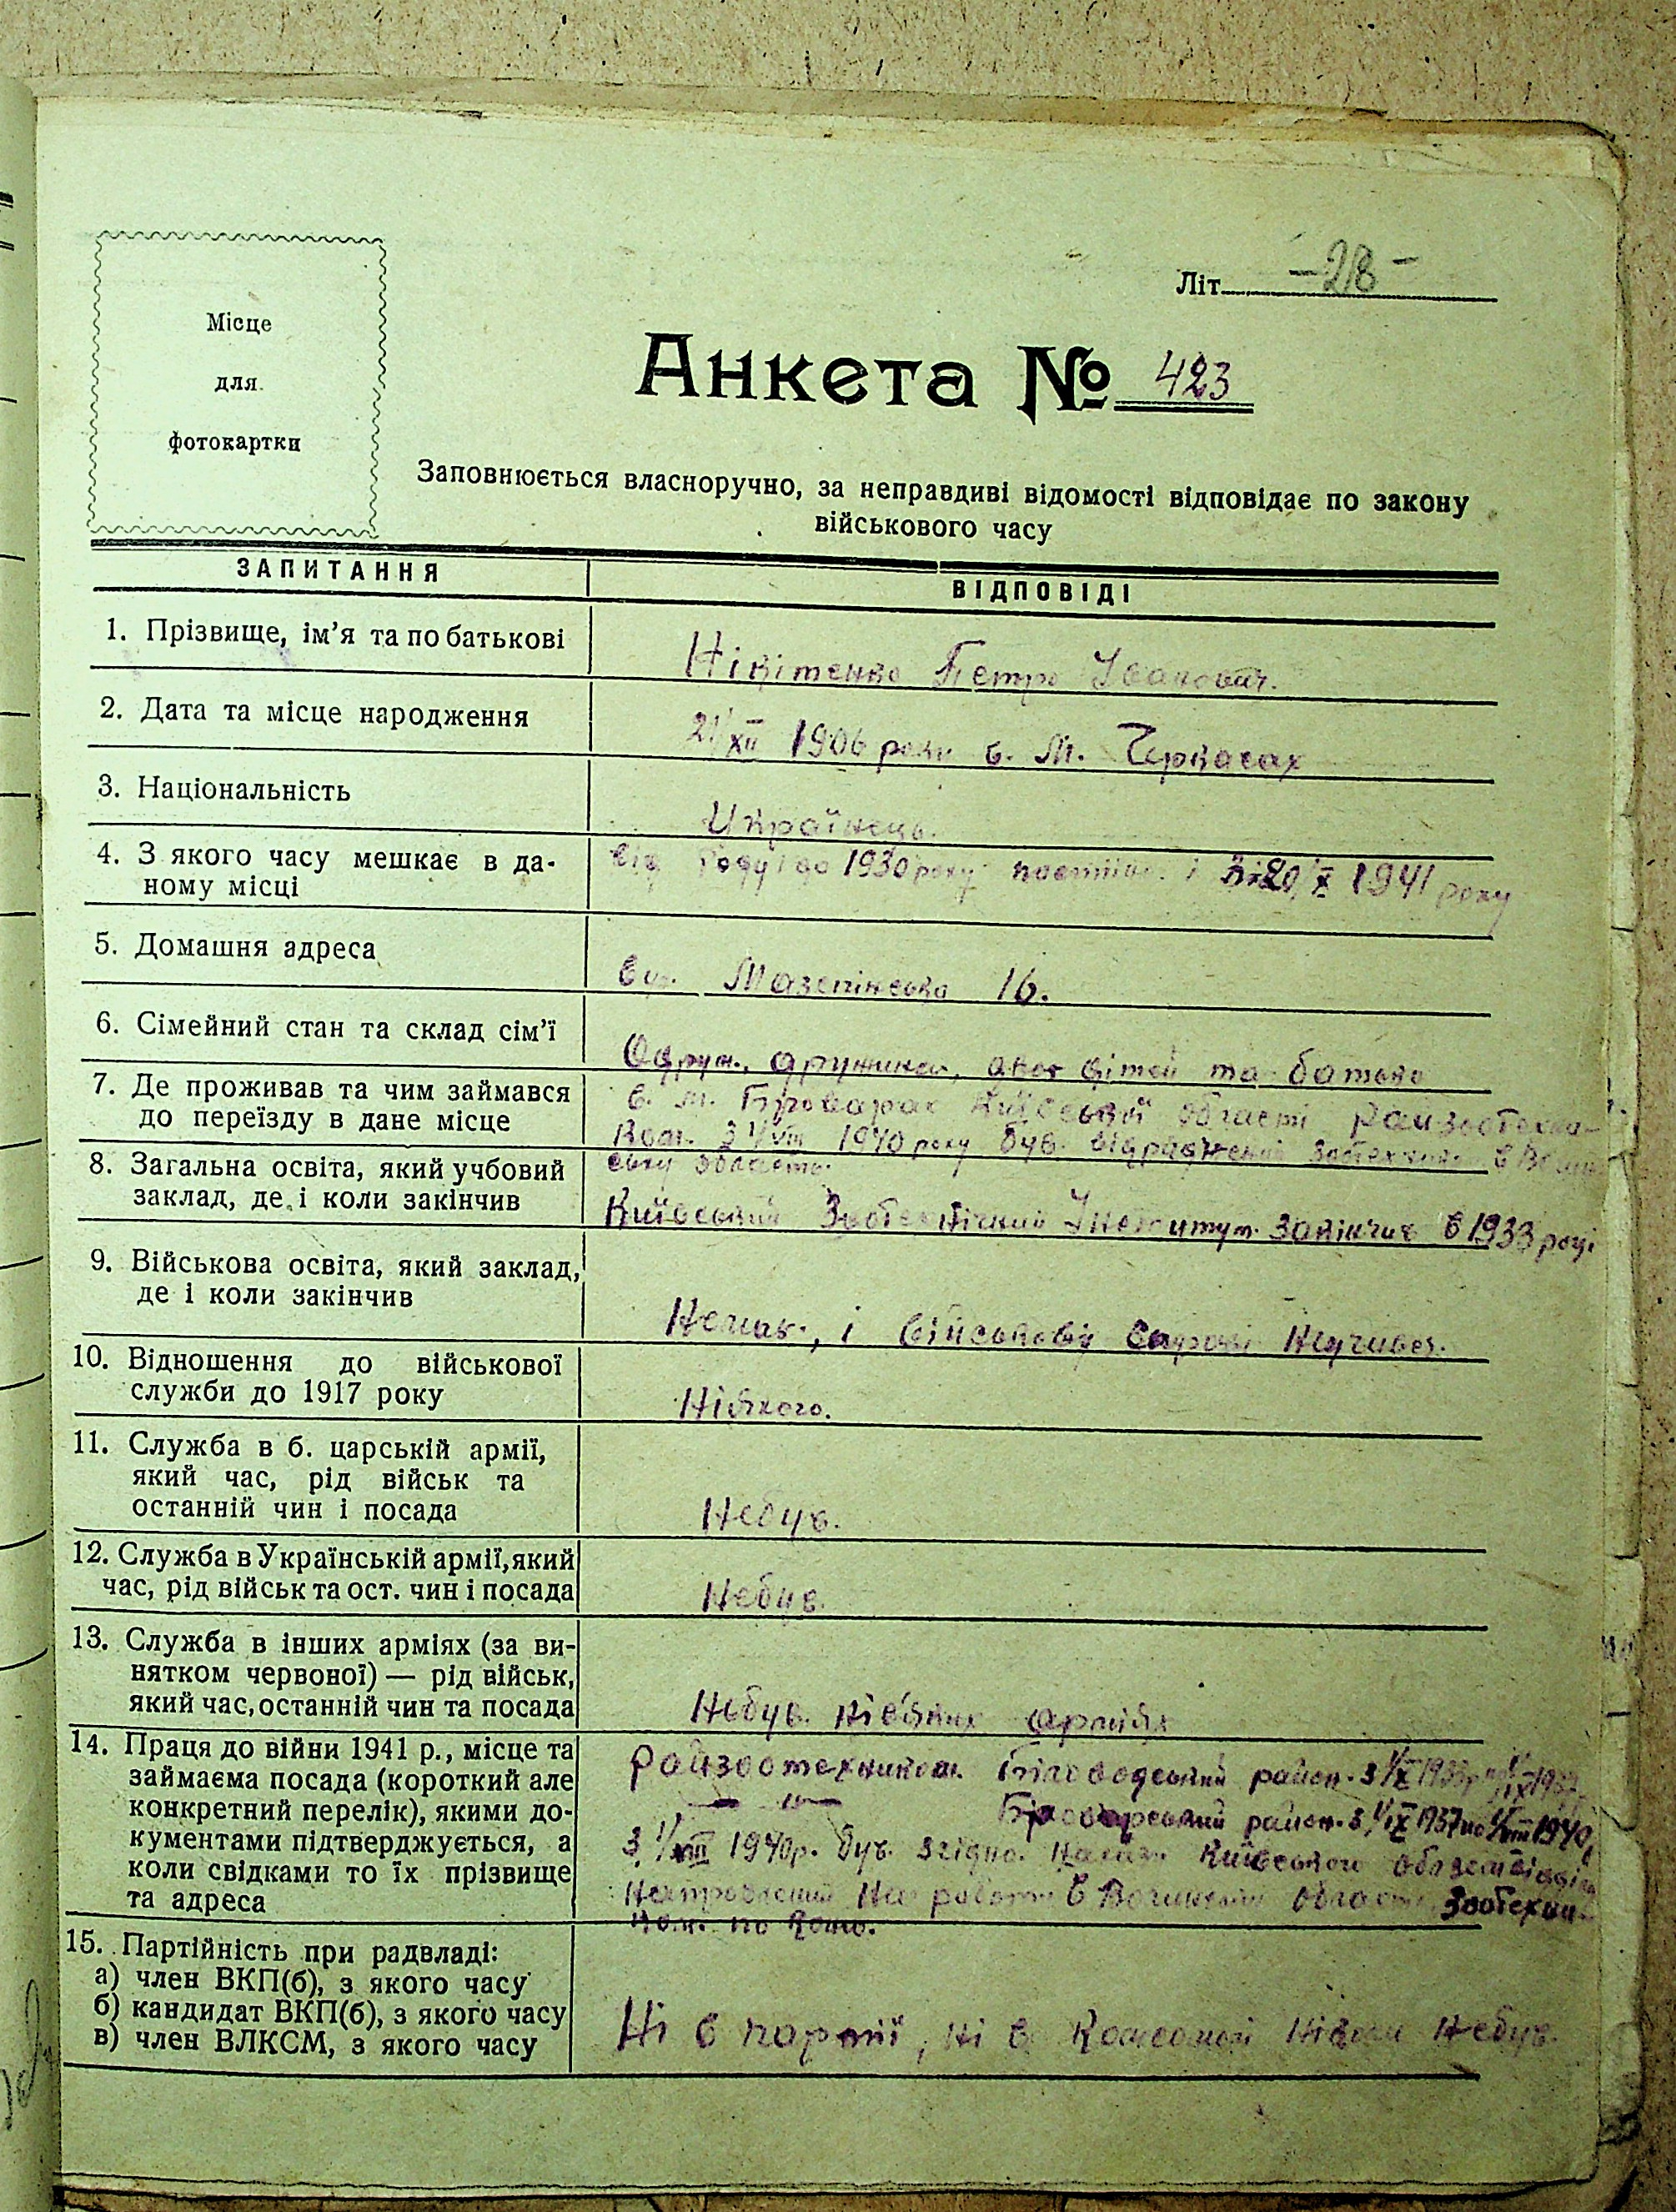 Літ. -28-
Місце
для
фотокартки
Анкета № 423
Заповнюється власноручно, за неправдиві відомості відповідає по закону
військового часу
ЗАПИТАННЯ
ВІДПОВІДІ
1. Прізвище, ім'я та по батькові
Нікітенко Петро Іванович.
2. Дата та місце народження
21/XII 1906 року в. м. Черкасах
3. Національність
Українець.
4. З якого часу мешкає в да-
ному місці
від до 1930 року і 20/X 1941 року
5. Домашня адреса
вул. Мазепінська 16.
6. Сімейний стан та склад сім'ї
Одруж., дружина, двое дітей та батько
7. Де проживав та чим займався
до переїзду в дане місце
в. м. Броварах Київської області райзоотехні-
ком. З 1/VIII 1940 року був. зоотехніком в Волин
ську область.
8. Загальна освіта, який учбовий
заклад, де і коли закінчив
Київський Зоотехнічний Інститут. закінчив в 1933 році
9. Військова освіта, який заклад,
де і коли закінчив
Немає, і військовій справі
10. Відношення до військової
служби до 1917 року
Ніякого.
11. Служба в б. царській армії,
який час, рід військ та
останній чин і посада
Небув.
12. Служба в Українській армії, який
час, рід військ та ост. чин і посада
Небув.
13. Служба в інших арміях (за ви-
нятком червоної) — рід військ,
який час, останній чин та посада
Небув. арміях
14. Праця до війни 1941 р., місце та
займаєма посада (короткий але
конкретний перелік), якими до-
кументами підтверджується, а
коли свідками то їх прізвище
та адреса
Райзоотехником. Біловодський район. з 1/X 1933р
— „ — район. з 1/IX 1937 по 1/VIII 1940,
З 1/VIII 1940р. був. згідно. Київського
на роботу в Волинську область Зоотехни-
ком. по
15. Партійність при радвладі:
а) член ВКП(б), з якого часу
б) кандидат ВКП(б), з якого часу
в) член ВЛКСМ, з якого часу
Ні в партії, ні в Комсомолі ніколи небув.